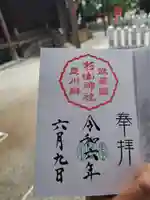 奉拝
武蔵國
杉山神社
令和六年
六月九日